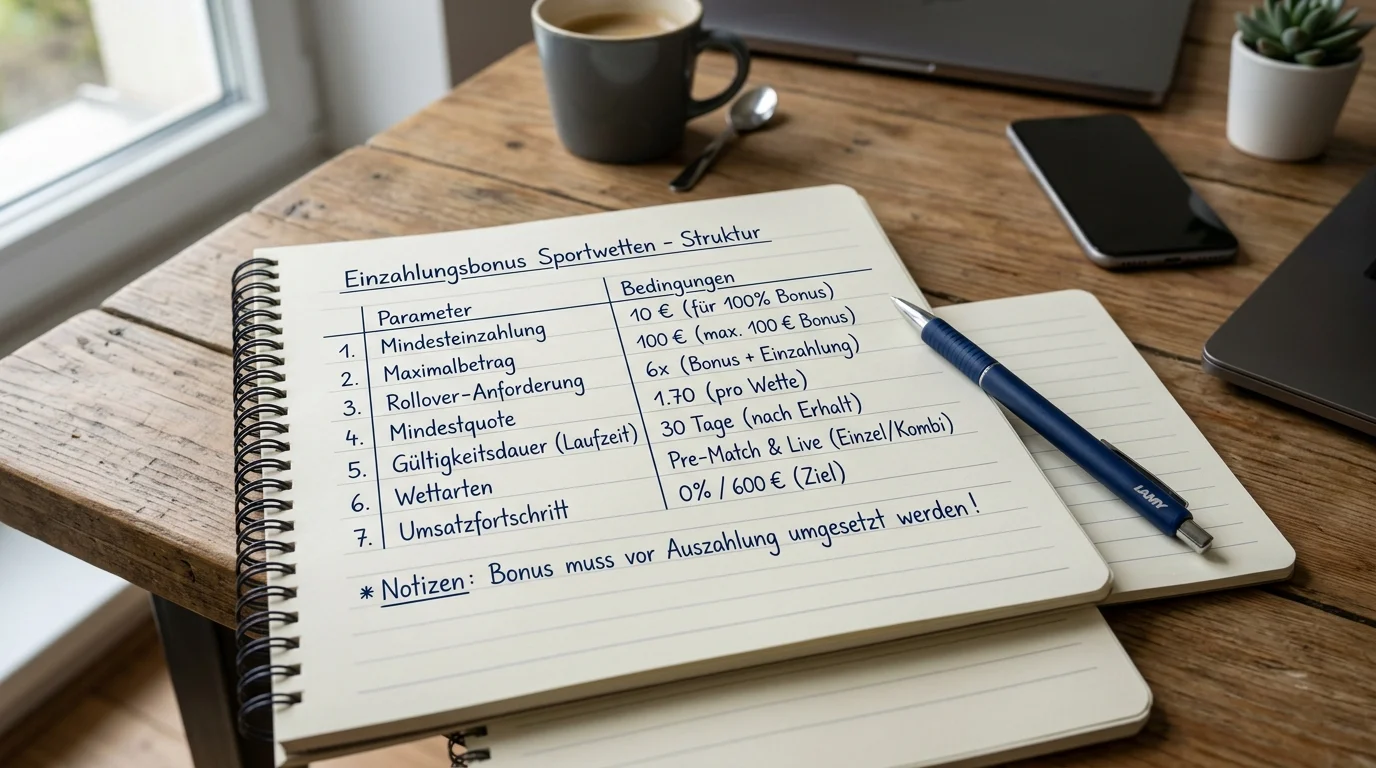 Einzahlungsbonus Sportwetten – Struktur
Parameter Bedingungen
1. Mindesteinzahlung 10 € (für 100% Bonus)
2. Maximalbetrag 100 € (max. 100 € Bonus)
3. Rollover-Anforderung 6x (Bonus + Einzahlung)
4. Mindestquote 1.70 (pro Wette)
5. Gültigkeitsdauer (Laufzeit) 30 Tage (nach Erhalt)
6. Wettarten Pre-Match & Live (Einzel/Kombi)
7. Umsatzfortschritt 0% / 600 € (Ziel)
* Notizen: Bonus muss vor Auszahlung umgesetzt werden!
LAMY